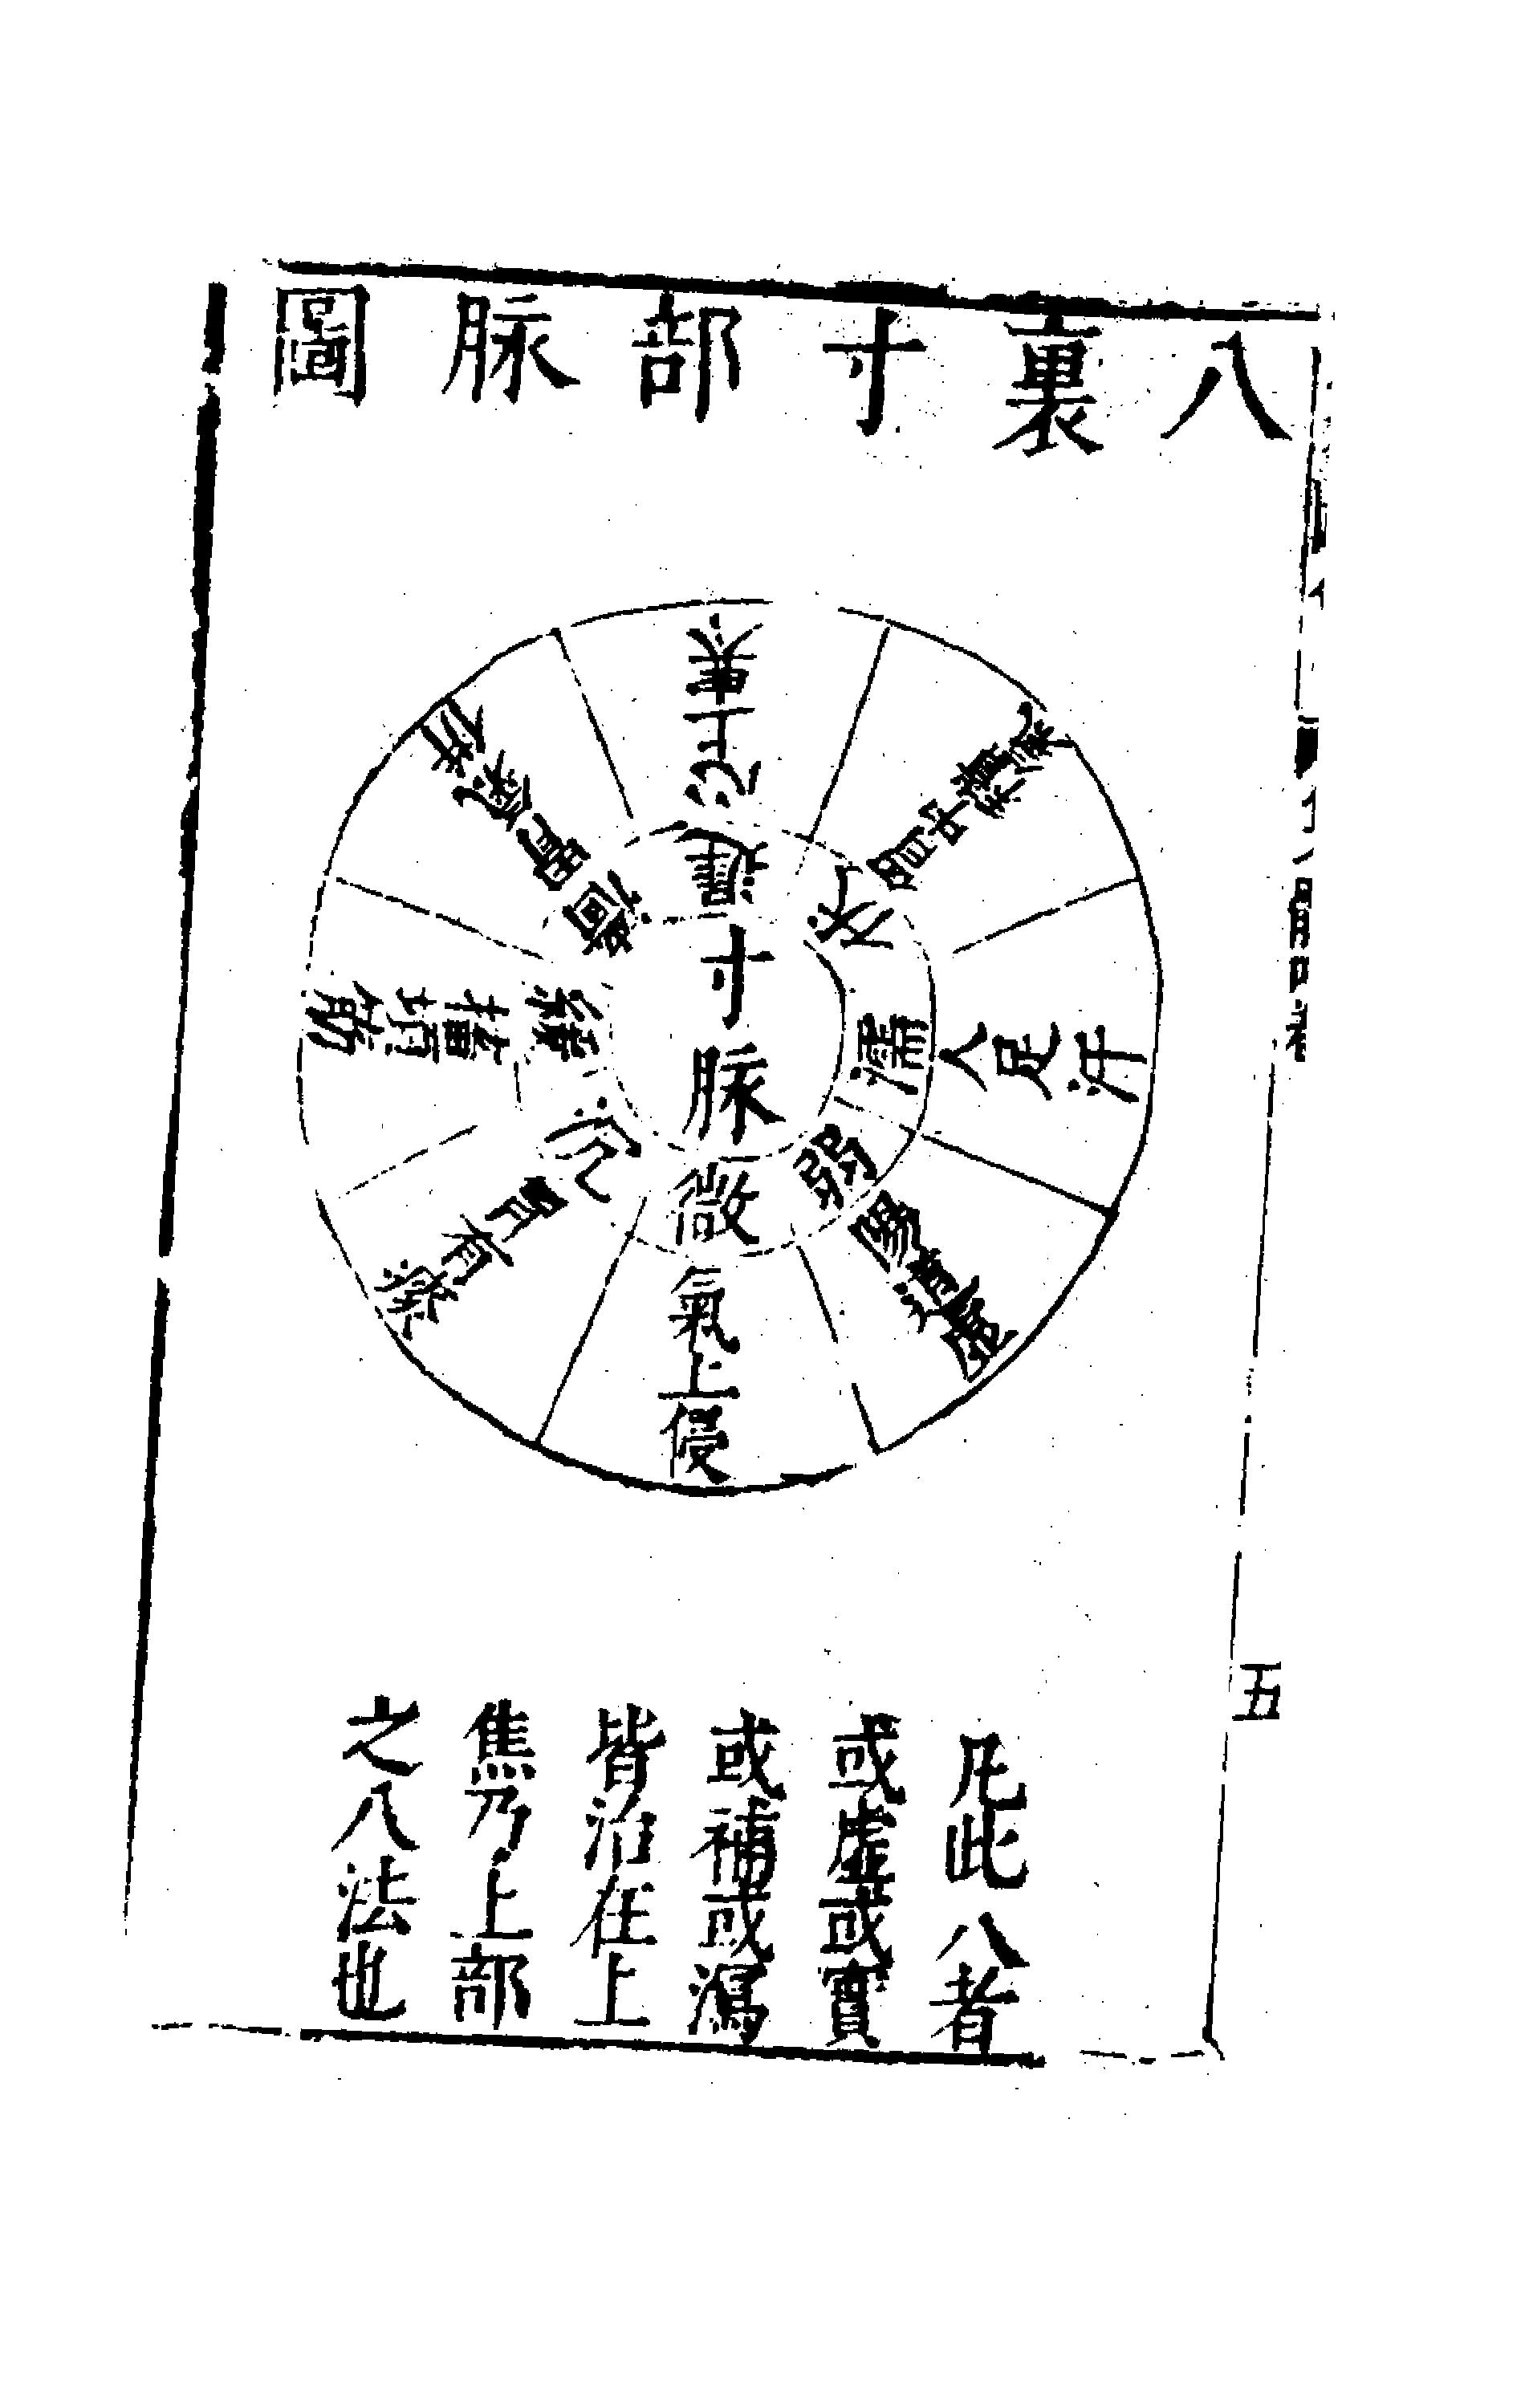 八裏寸部脉圖
寸脉
微 氣上侵
沉 胷有痰
緩 搐項筋
濇 胃氣併
遲 心上寒
伏
濡 人足汗
弱 陽道虛
凡此八者
或虛或實
或補或瀉
皆治在上
焦乃上部
之八法也
五